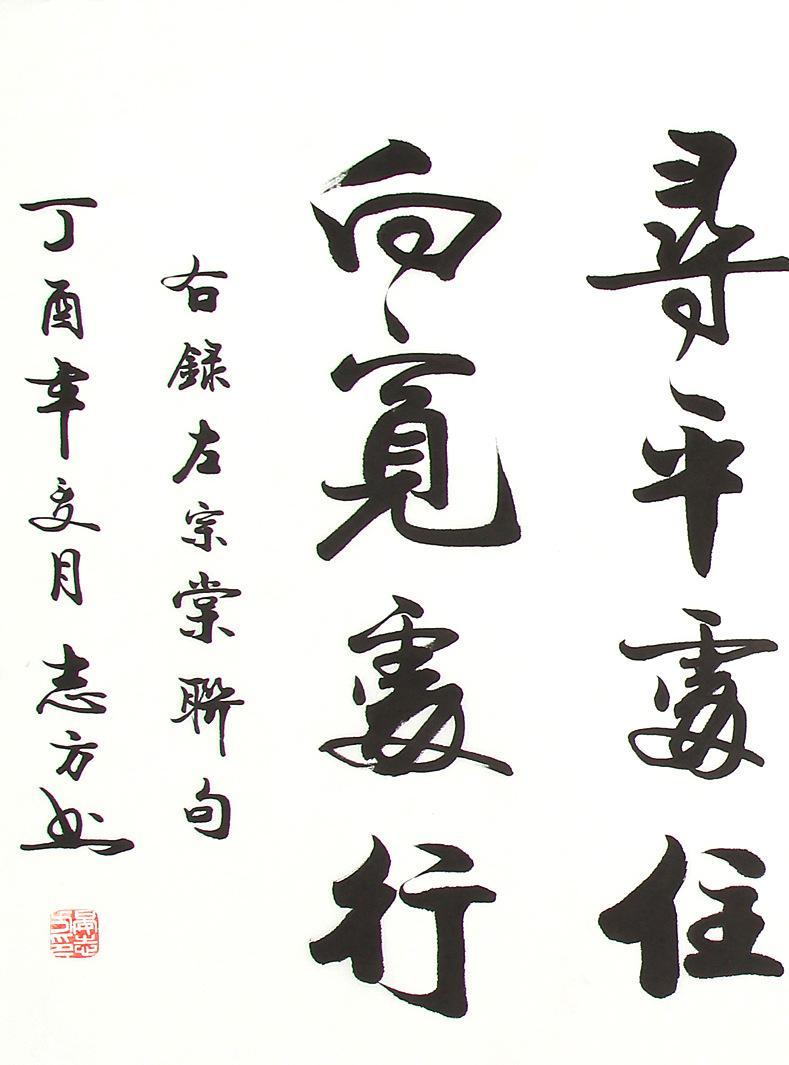 尋平處住
向寬處行
右録左宗棠聯句
丁酉年夏月志方書